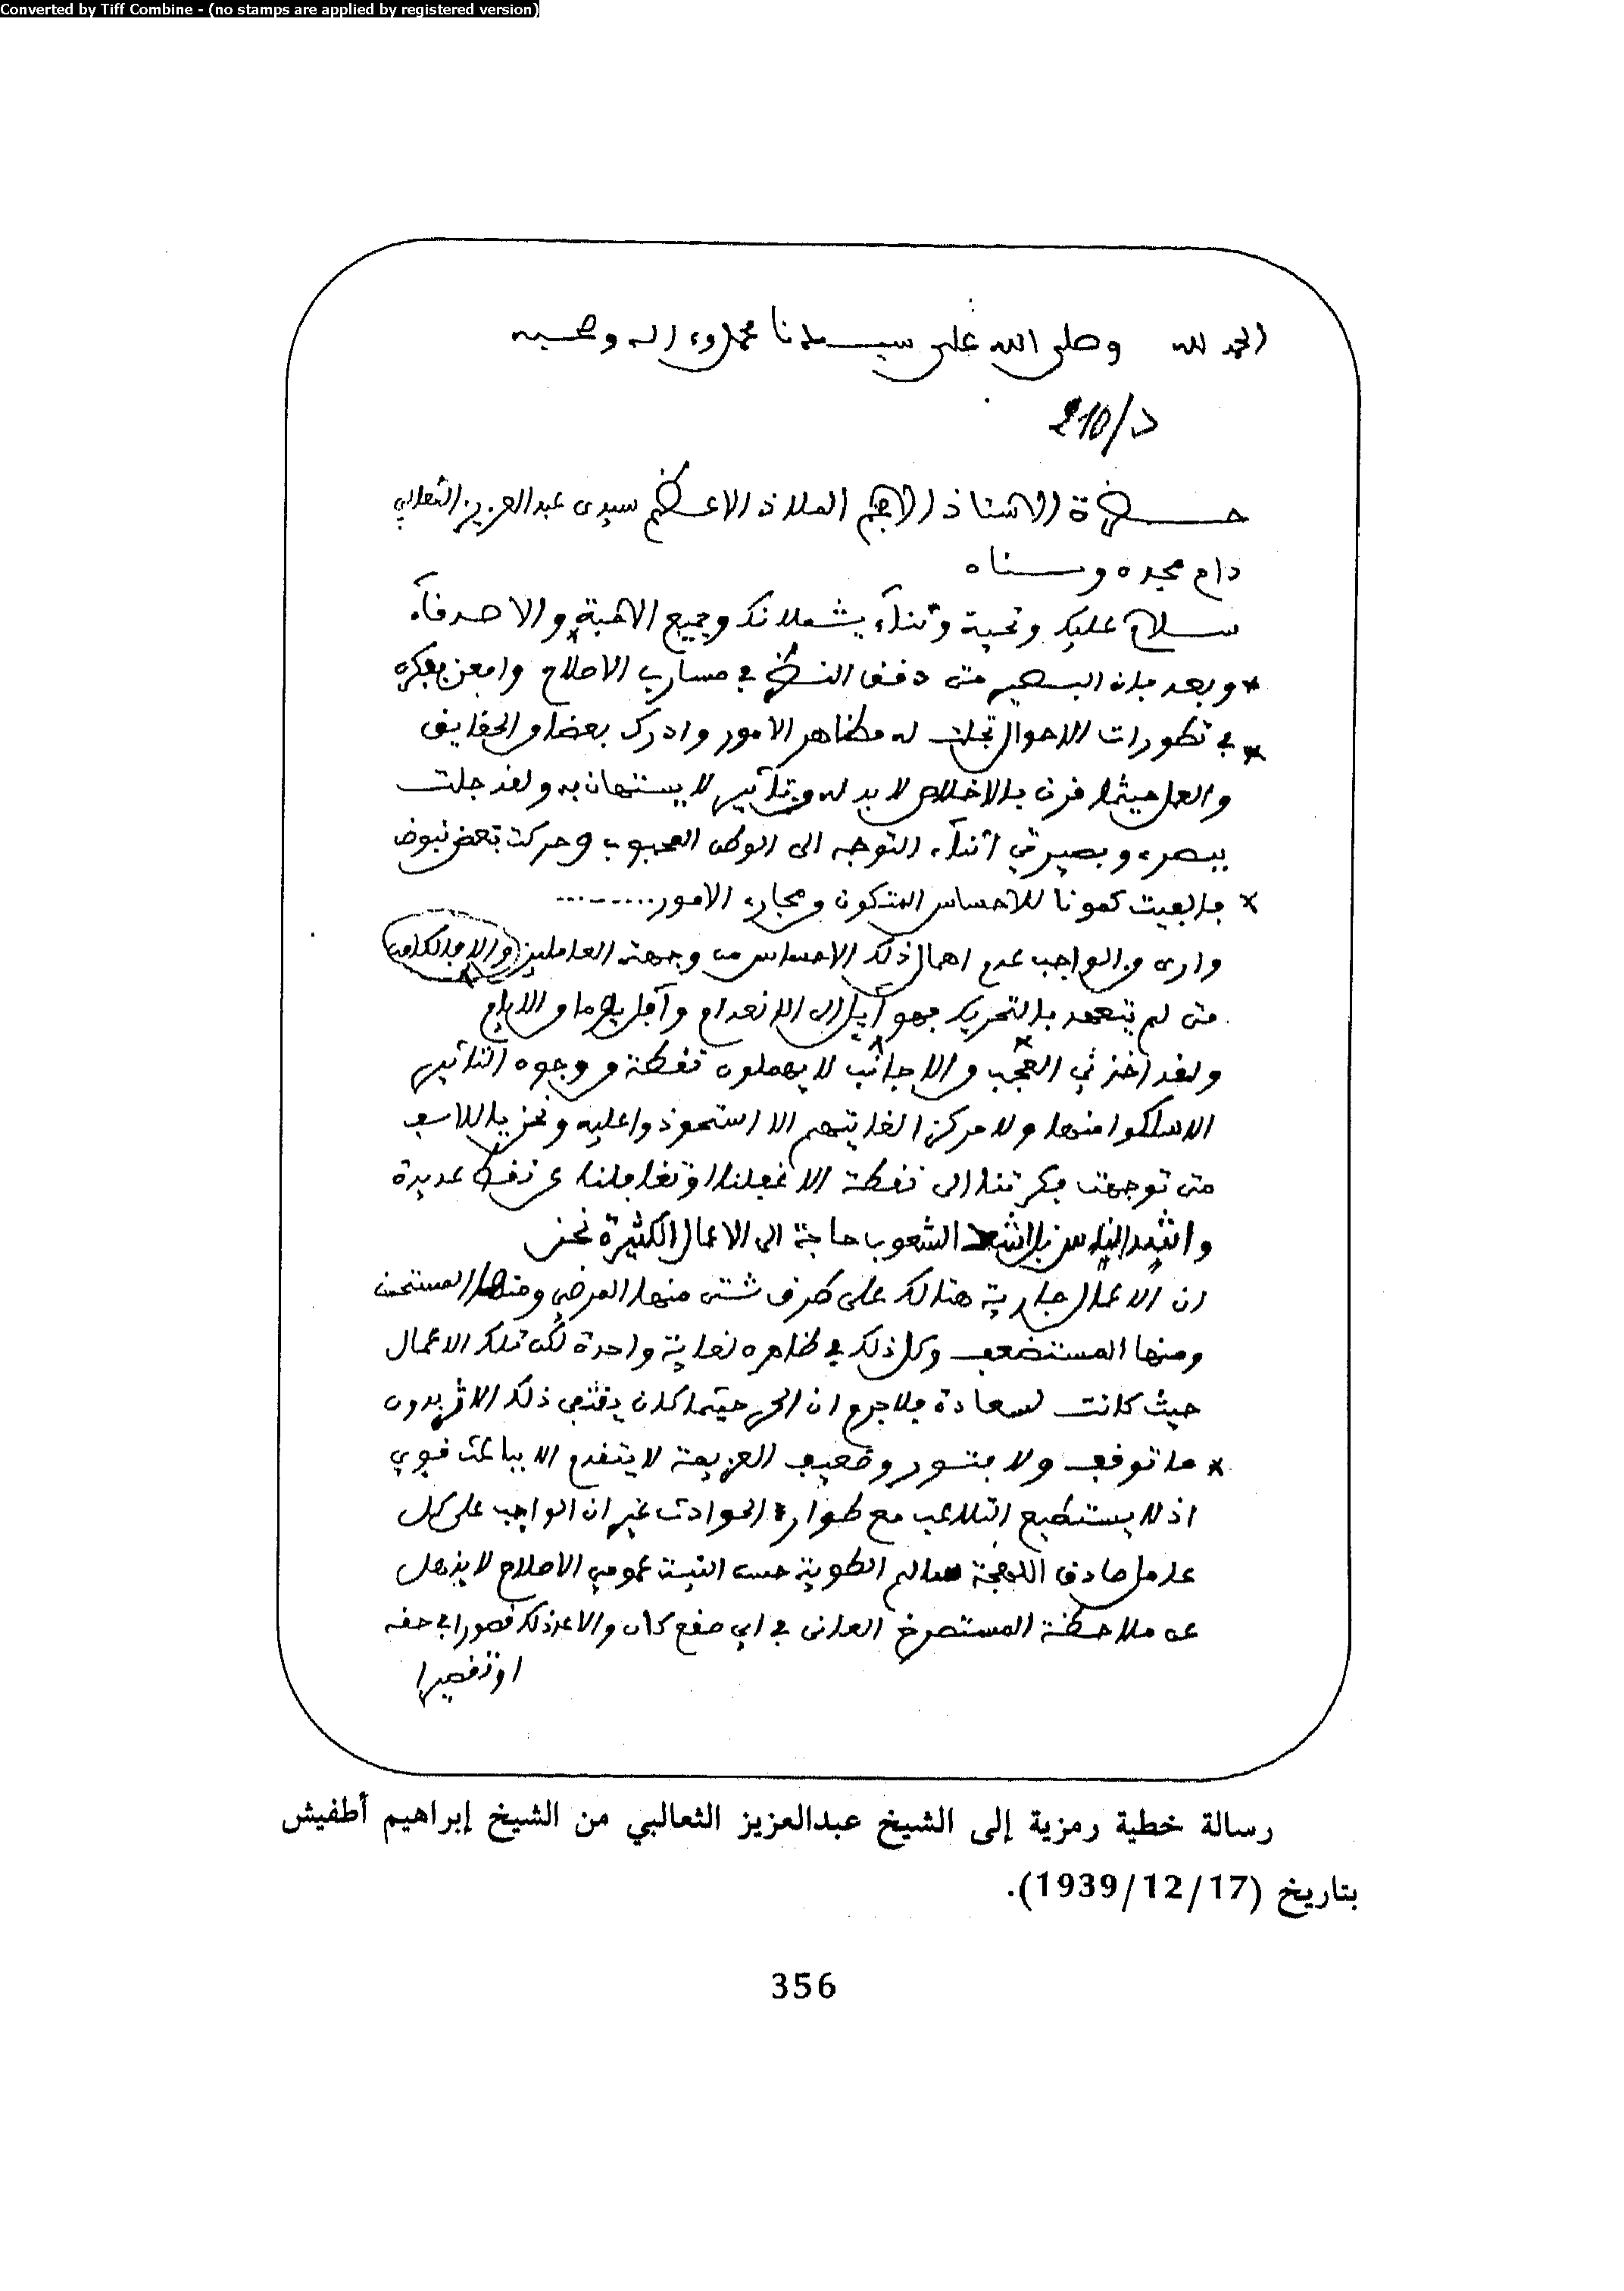 Converted by Tiff Combine - (no stamps are applied by registered version)
الحمد لله وصلى الله على سيدنا محمد وءاله وصحبه
210/د
حضرة الاستاذ الاهم الملاذ الاعظم سيدى عبد العزيز الثعالبي
دام مجده وسناه
سلام عليك وتحية وثناء يشملانك وجميع الاحبة والاصدقاء
* وبعد فان البصير متى دقق النظر في مسارب الاصلاح وامعن بفكره
* في تطورات الاحوال تجلت له مظاهر الامور وادرك بعضا من الحقايق
والعمل حيثما قرن بالاخلاص لا بد له من تأثير لا يستهان به ولقد جلت
ببصرى وبصيرتي اثناء التوجه الى الوطن المحبوب وحركت بعض نبوض
* فالفيت كمونا للاحساس المتكون من مجارى الامور.........
وارى من الواجب عدم اهمال ذلك الاحساس من وجهة العاملين والا فالكامن
متى لم يتعهد بالتحريك فهو آيل الى الانعدام وآفل
ولقد اخذني العجب من الاجانب لا يهملون نقطة من وجوه التاثير
الا سلكوا منها ولا مركز الغايتهم الا استحوذوا عليه ونحن يا للاسف
متى توجهت فكرتنا الى نقطة الا غفلنا او تغافلنا عن نقط عديدة
الشعوب حاجة الى الاعمال الكثيرة نحن
ان الاعمال جارية هنالك على طرق شتى منها المرضي ومنها المستحسن
ومنها المستضعف وكل ذلك في ظاهره لغاية واحدة لكن تلك الاعمال
حيث كانت لسعادة فلا جرم ان الحر حيثما كان يقتفي ذلك الاثر بدون
* ما توقف ولا فتور وضعيف العزيمة لا يتقدم الا بباعث قوي
اذ لا يستطيع التلاعب مع طوارئ الحوادث غير ان الواجب على كل
عامل صادق اللهجة سالم الطوية حسن النية عمومي الاصلاح لا يذهل
عن ملاحظة المستصرخ العانى في اي صقع كان والا عد ذلك قصورا في حقه
او تقصيرا
رسالة خطية رمزية إلى الشيخ عبدالعزيز الثعالبي من الشيخ إبراهيم أطفيش
بتاريخ (1939/12/17).
356